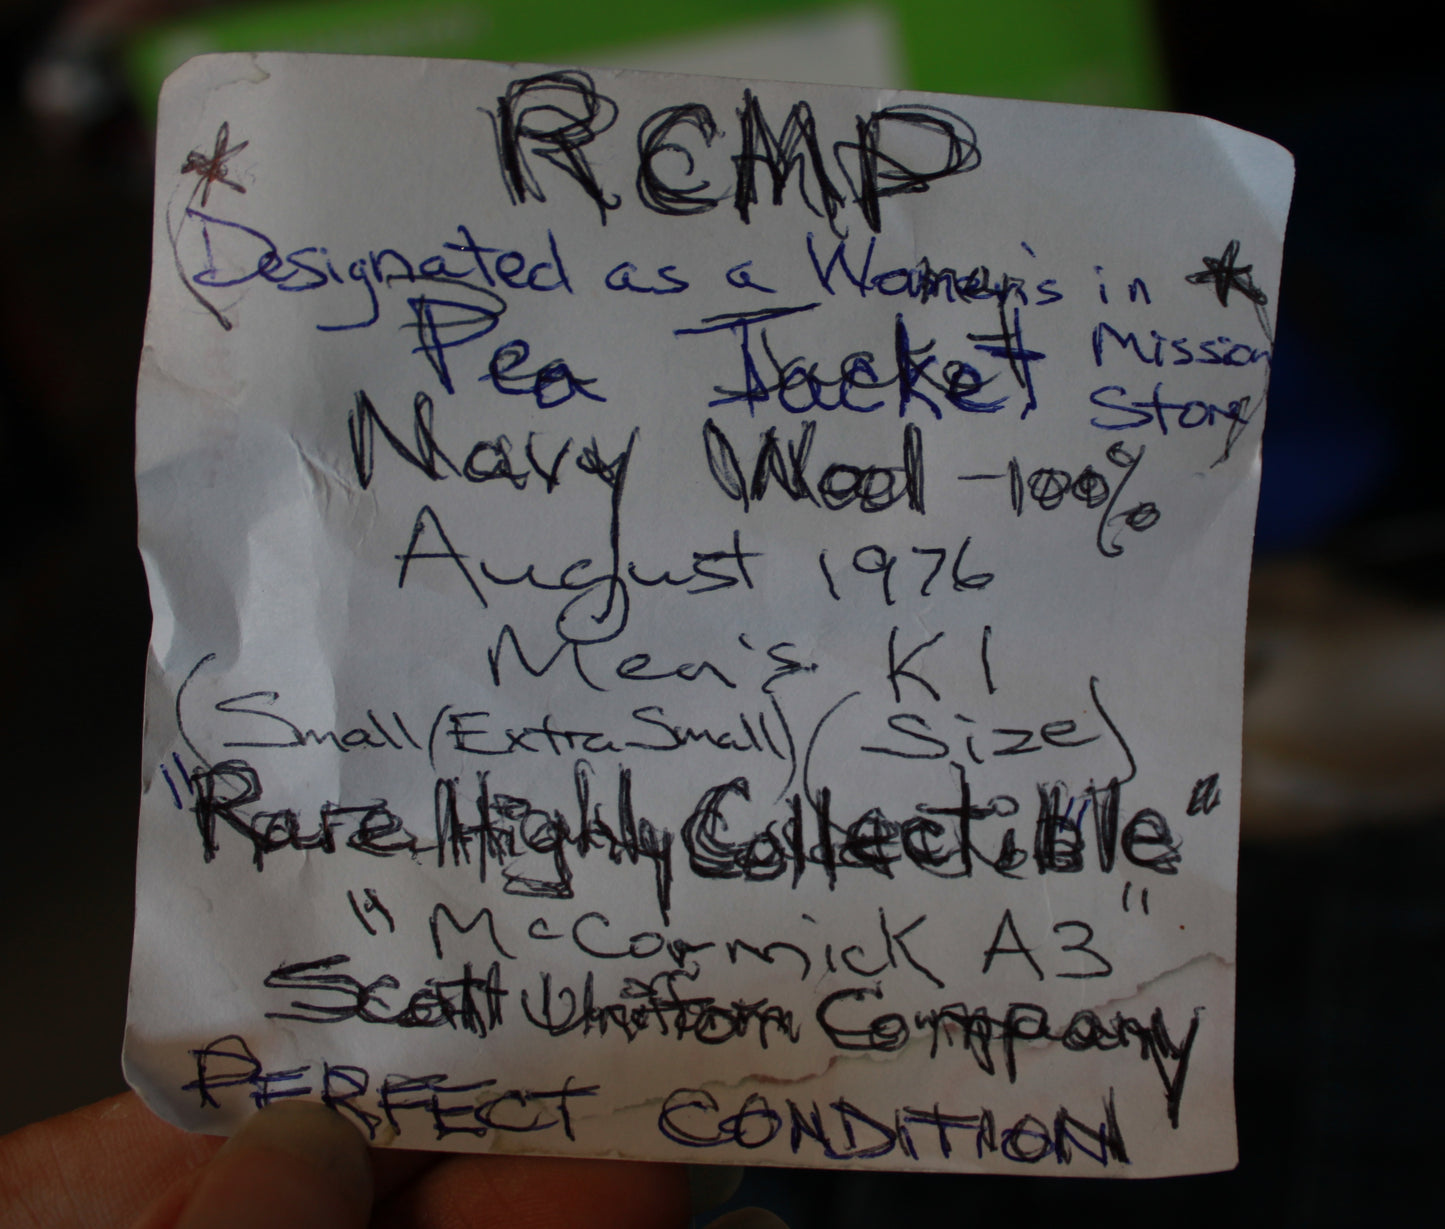 RCMP
* (Designated as a Women's in Mission Store) *
Pea Jacket
Navy Wool - 100%
August 1976
Men's K1
(Small/(Extra Small) (Size)
"Rare Highly Collectible"
"McCormick A3"
Scott Uniform Company
PERFECT CONDITION